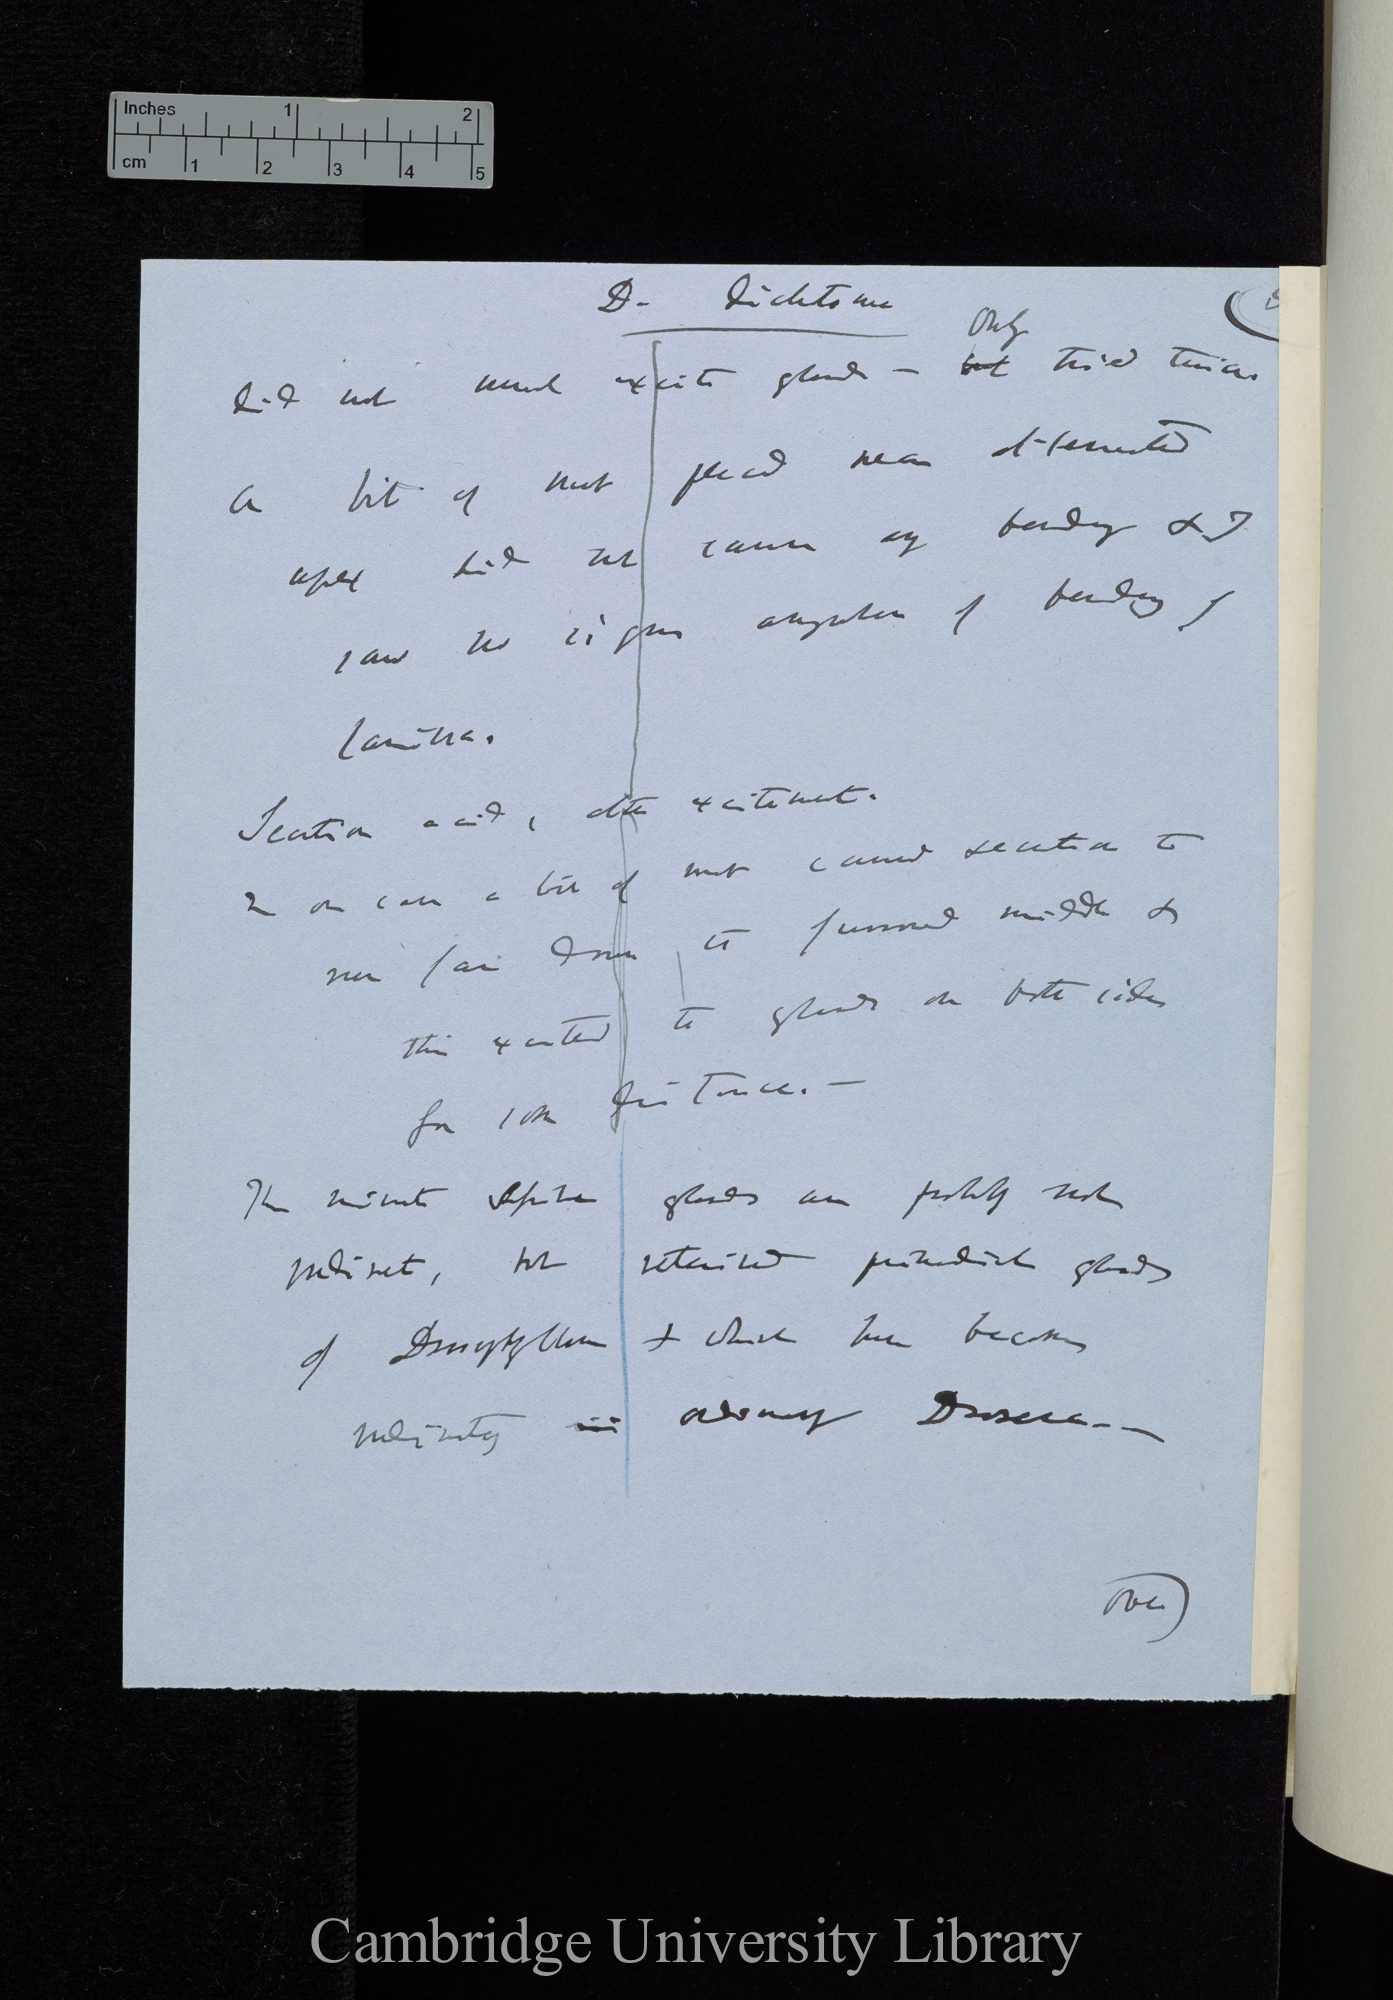 Inches 1 2
cm 1 2 3 4 5
D. dichtoma
Only
did not much excite glands — but tried twice
a bit of meat placed near attenuated
apex did not cause any bending & I
saw no signs anywhere of bending of
lamina.
Secretion acid, after excitement.
In one case a bit of meat caused secretion to
run far down to furrowed middle &
this excited the glands on both sides
for some distance. —
The minute sessile glands are probably not
rudiment, but retained primordial glands
of Drosophyllum & which have become
rudimentary in ordinary Drosera —
Over)
Cambridge University Library